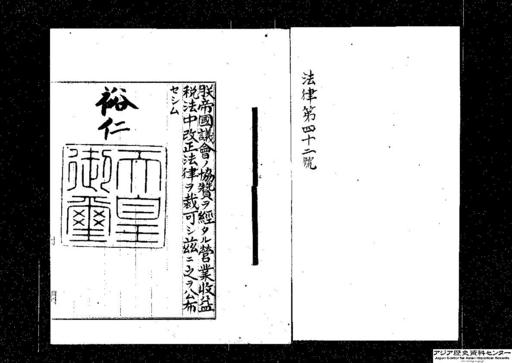 法律第四十二號
朕帝國議會ノ協賛ヲ經タル營業收益
税法中改正法律ヲ裁可シ茲ニ之ヲ公布
セシム
裕仁
天皇
御璽
アジア歴史資料センター
Japan Center for Asian Historical Records